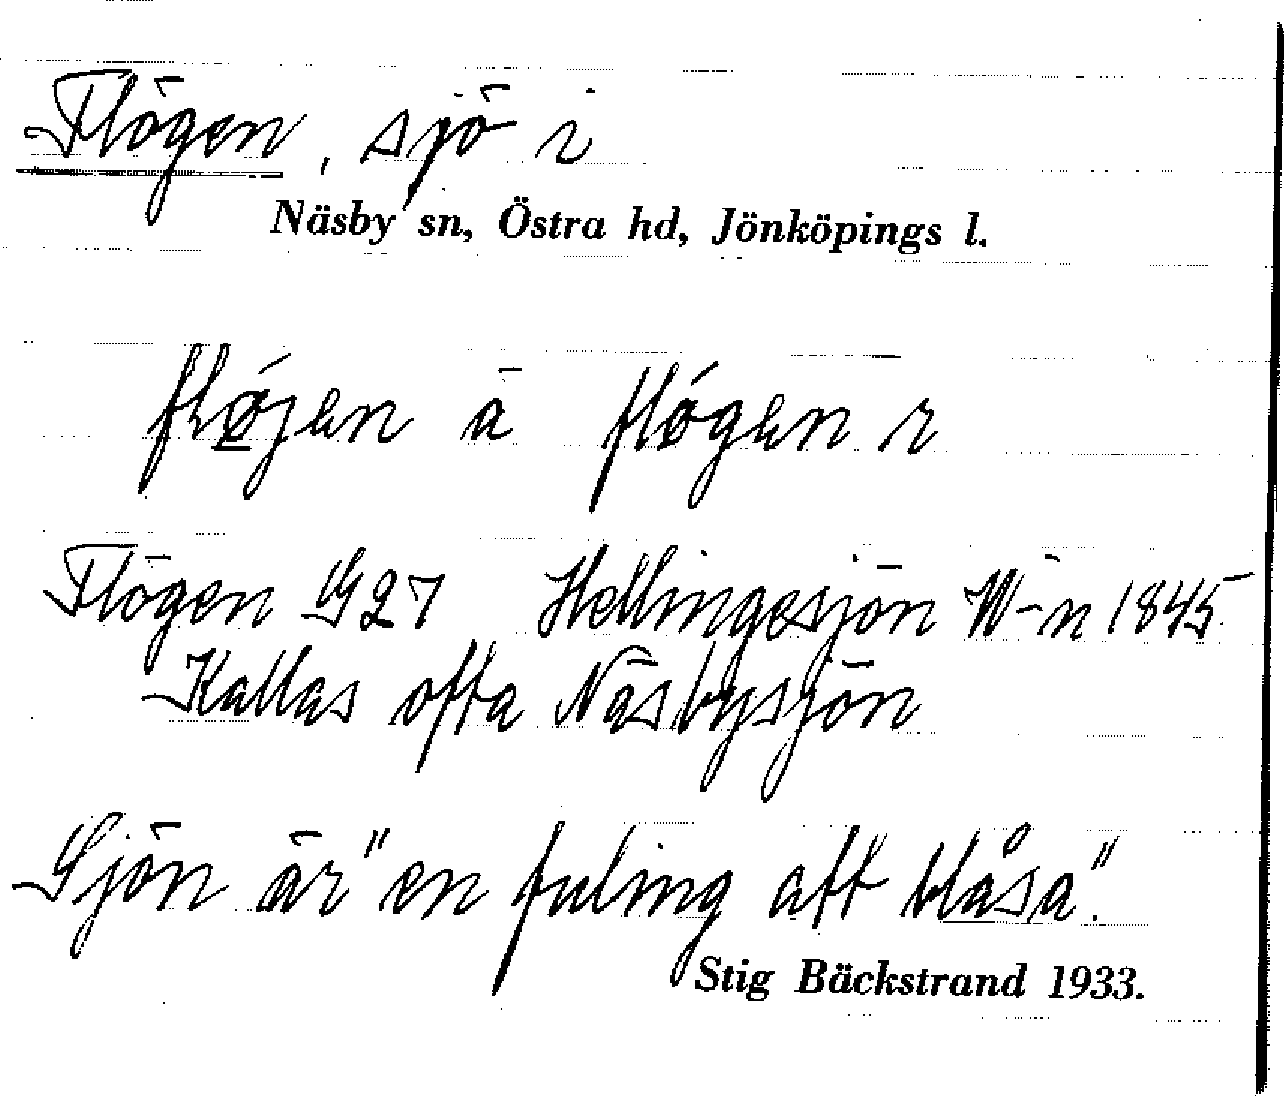 Flögen, sjö i
Näsby sn, Östra hd, Jönköpings l.
flǿjen ä flógen r
Flögen G27 Hellingesjön W-n 1845
Kallas ofta Näsbysjön
Sjön är "en fuling att blåsa".
Stig Bäckstrand 1933.